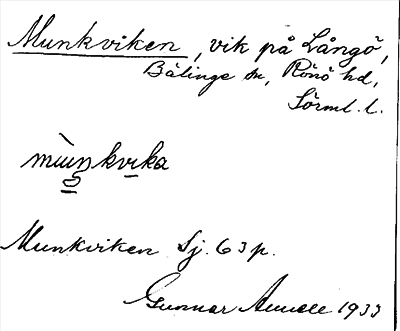 Munkviken, vik på Långö,
Bälinge sn, Rönö hd,
Sörml. l.
mùnkvika
Munkviken Sj. 63 p.
Gunnar Amell 1933